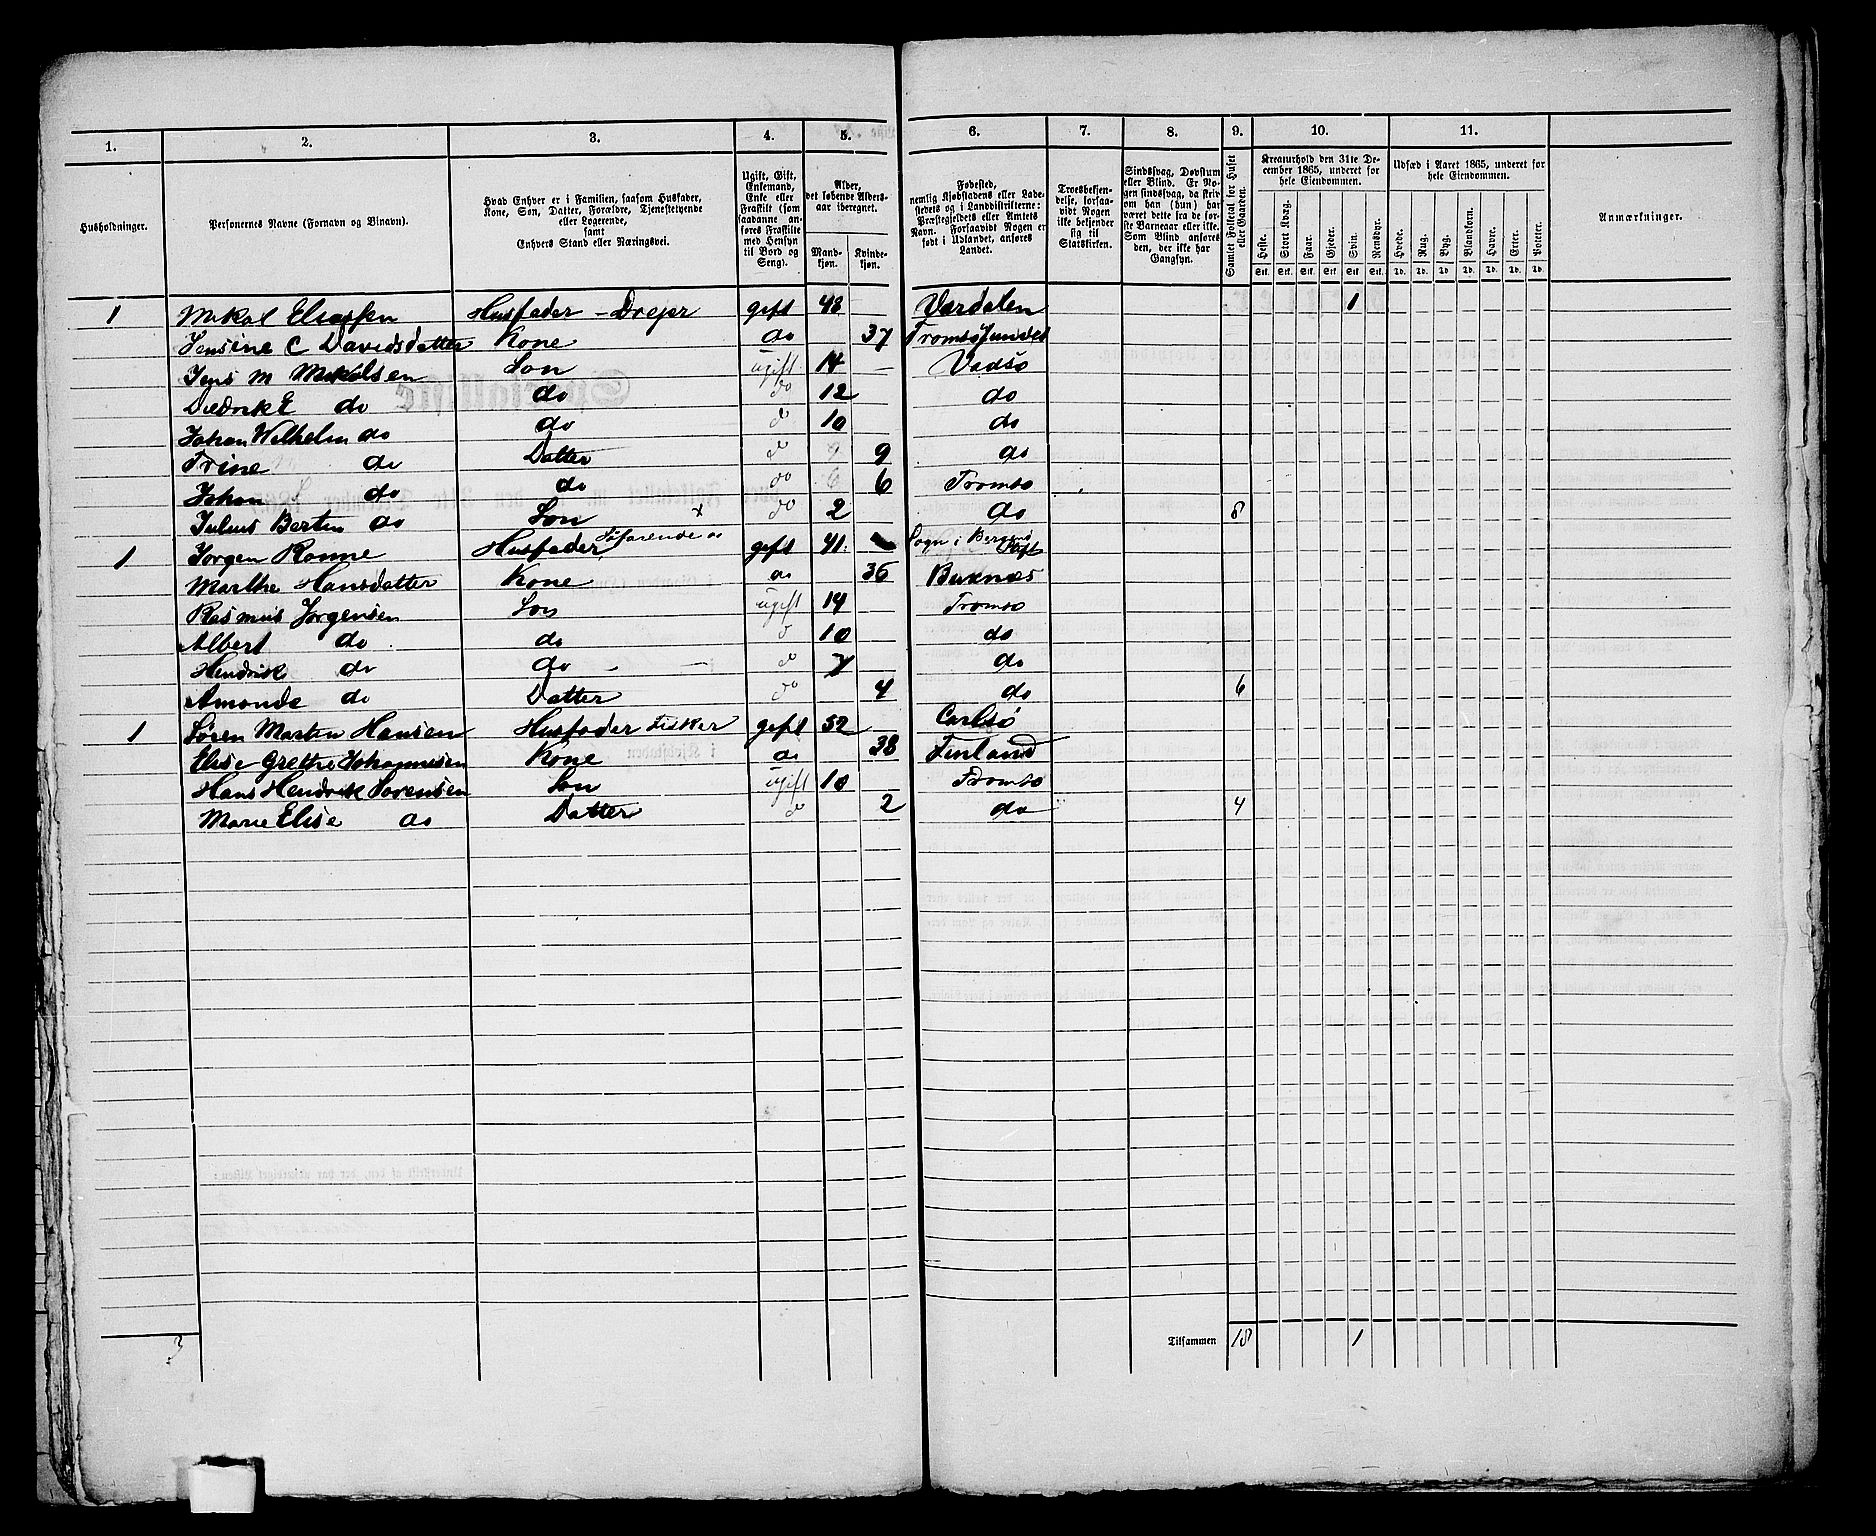 1. 2. 3. 4. 5. 6. 7. 8. 9. 10. 11.
Husholdninger.
Personernes Navne (Fornavn og Binavn).
Hvad Enhver er i Familien, saasom Husfader, Kone, Søn, Datter, Forældre, Tjenestetyende eller Logerende, samt Enhvers Stand eller Næringsvei.
Ugift, Gift, Enkemand, Enke eller Fraskilt (som saadanne anføres Fraskilte med Hensyn til Bord og Seng).
Alder, det løbende Alders-aar iberegnet.
Mand-kjøn. Kvinde-kjøn.
Fødested, nemlig Kjøbstadens eller Ladestedets og i Landdistrikterne: Præstegjeldets eller Amtets Navn. Forsaavidt Nogen er født i Udlandet, anføres Landet.
Troesbekjendelse, forsaavidt Nogen ikke bekjender sig til Statskirken.
Sindssvag, Døvstum eller Blind. Er Nogen sindssvag, da skrives om han (hun) har været dette fra de første Barneaar eller ikke. Som Blind anføres den, der ikke har Gangsyn.
Samlet Folketal for Huset eller Gaarden.
Kreaturhold den 31te December 1865, underet for hele Eiendommen.
Heste. Stort Kvæg. Faar. Gjeder. Svin. Rensdyr.
Stk. Stk. Stk. Stk. Stk. Stk.
Udsæd i Aaret 1865, underet for hele Eiendommen.
Hvede. Rug. Byg. Blandkorn. Havre. Erter. Poteter.
Td. Td. Td. Td. Td. Td. Td.
Anmærkninger.
1 Mikal Eliassen Husfader - Drejer gift 48 Værdalen 1
Jensine C Davidsdatter Kone do 37 Tromsøsundet
Jens M Mikalsen Søn ugift 14 Vadsø
Diedrik E do do do 12 do
Johan Wilhelm do do d 10 do
Trine do Datter d 9 do
Johan do do do 6 Tromsø
Julius Bertin do Søn do 2 do 8
1 Jørgen Rønne Husfader Søfarende gift 41 Sogn i Bergens Stift
Marthe Hansdatter Kone do 36 Buknæs
Rasmus Jørgensen Søn ugift 14 Tromsø
Albert do do d 10 do
Hendrik do do d 7 do
Amonde do Datter do 4 do 6
1 Søren Martin Hansen Husfader Fisker gift 52 Carlsø
Elise Grethe Johannesen Kone do 38 Finland
Hans Hendrik Sørensen Søn ugift 10 Tromsø
Marie Elise do Datter d 2 do 4
3 Tilsammen 18 1